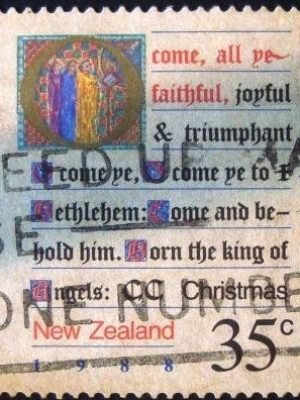 O come, all ye
faithful, joyful
& triumphant
O come ye, O come ye to
Bethlehem: Come and be-
hold him. Born the king of
Angels: CC Christmas
New Zealand 35c
1988
EED UP
SE
ONE NUMBER